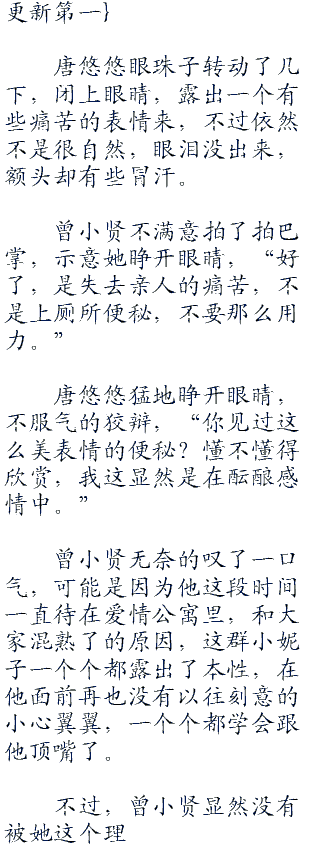 更新第一}
唐悠悠眼珠子转动了几
下，闭上眼睛，露出一个有
些痛苦的表情来，不过依然
不是很自然，眼泪没出来，
额头却有些冒汗。
曾小贤不满意拍了拍巴
掌，示意她睁开眼睛，“好
了，是失去亲人的痛苦，不
是上厕所便秘，不要那么用
力。”
唐悠悠猛地睁开眼睛，
不服气的狡辩，“你见过这
么美表情的便秘？懂不懂得
欣赏，我这显然是在酝酿感
情中。”
曾小贤无奈的叹了一口
气，可能是因为他这段时间
一直待在爱情公寓里，和大
家混熟了的原因，这群小妮
子一个个都露出了本性，在
他面前再也没有以往刻意的
小心翼翼，一个个都学会跟
他顶嘴了。
不过，曾小贤显然没有
被她这个理